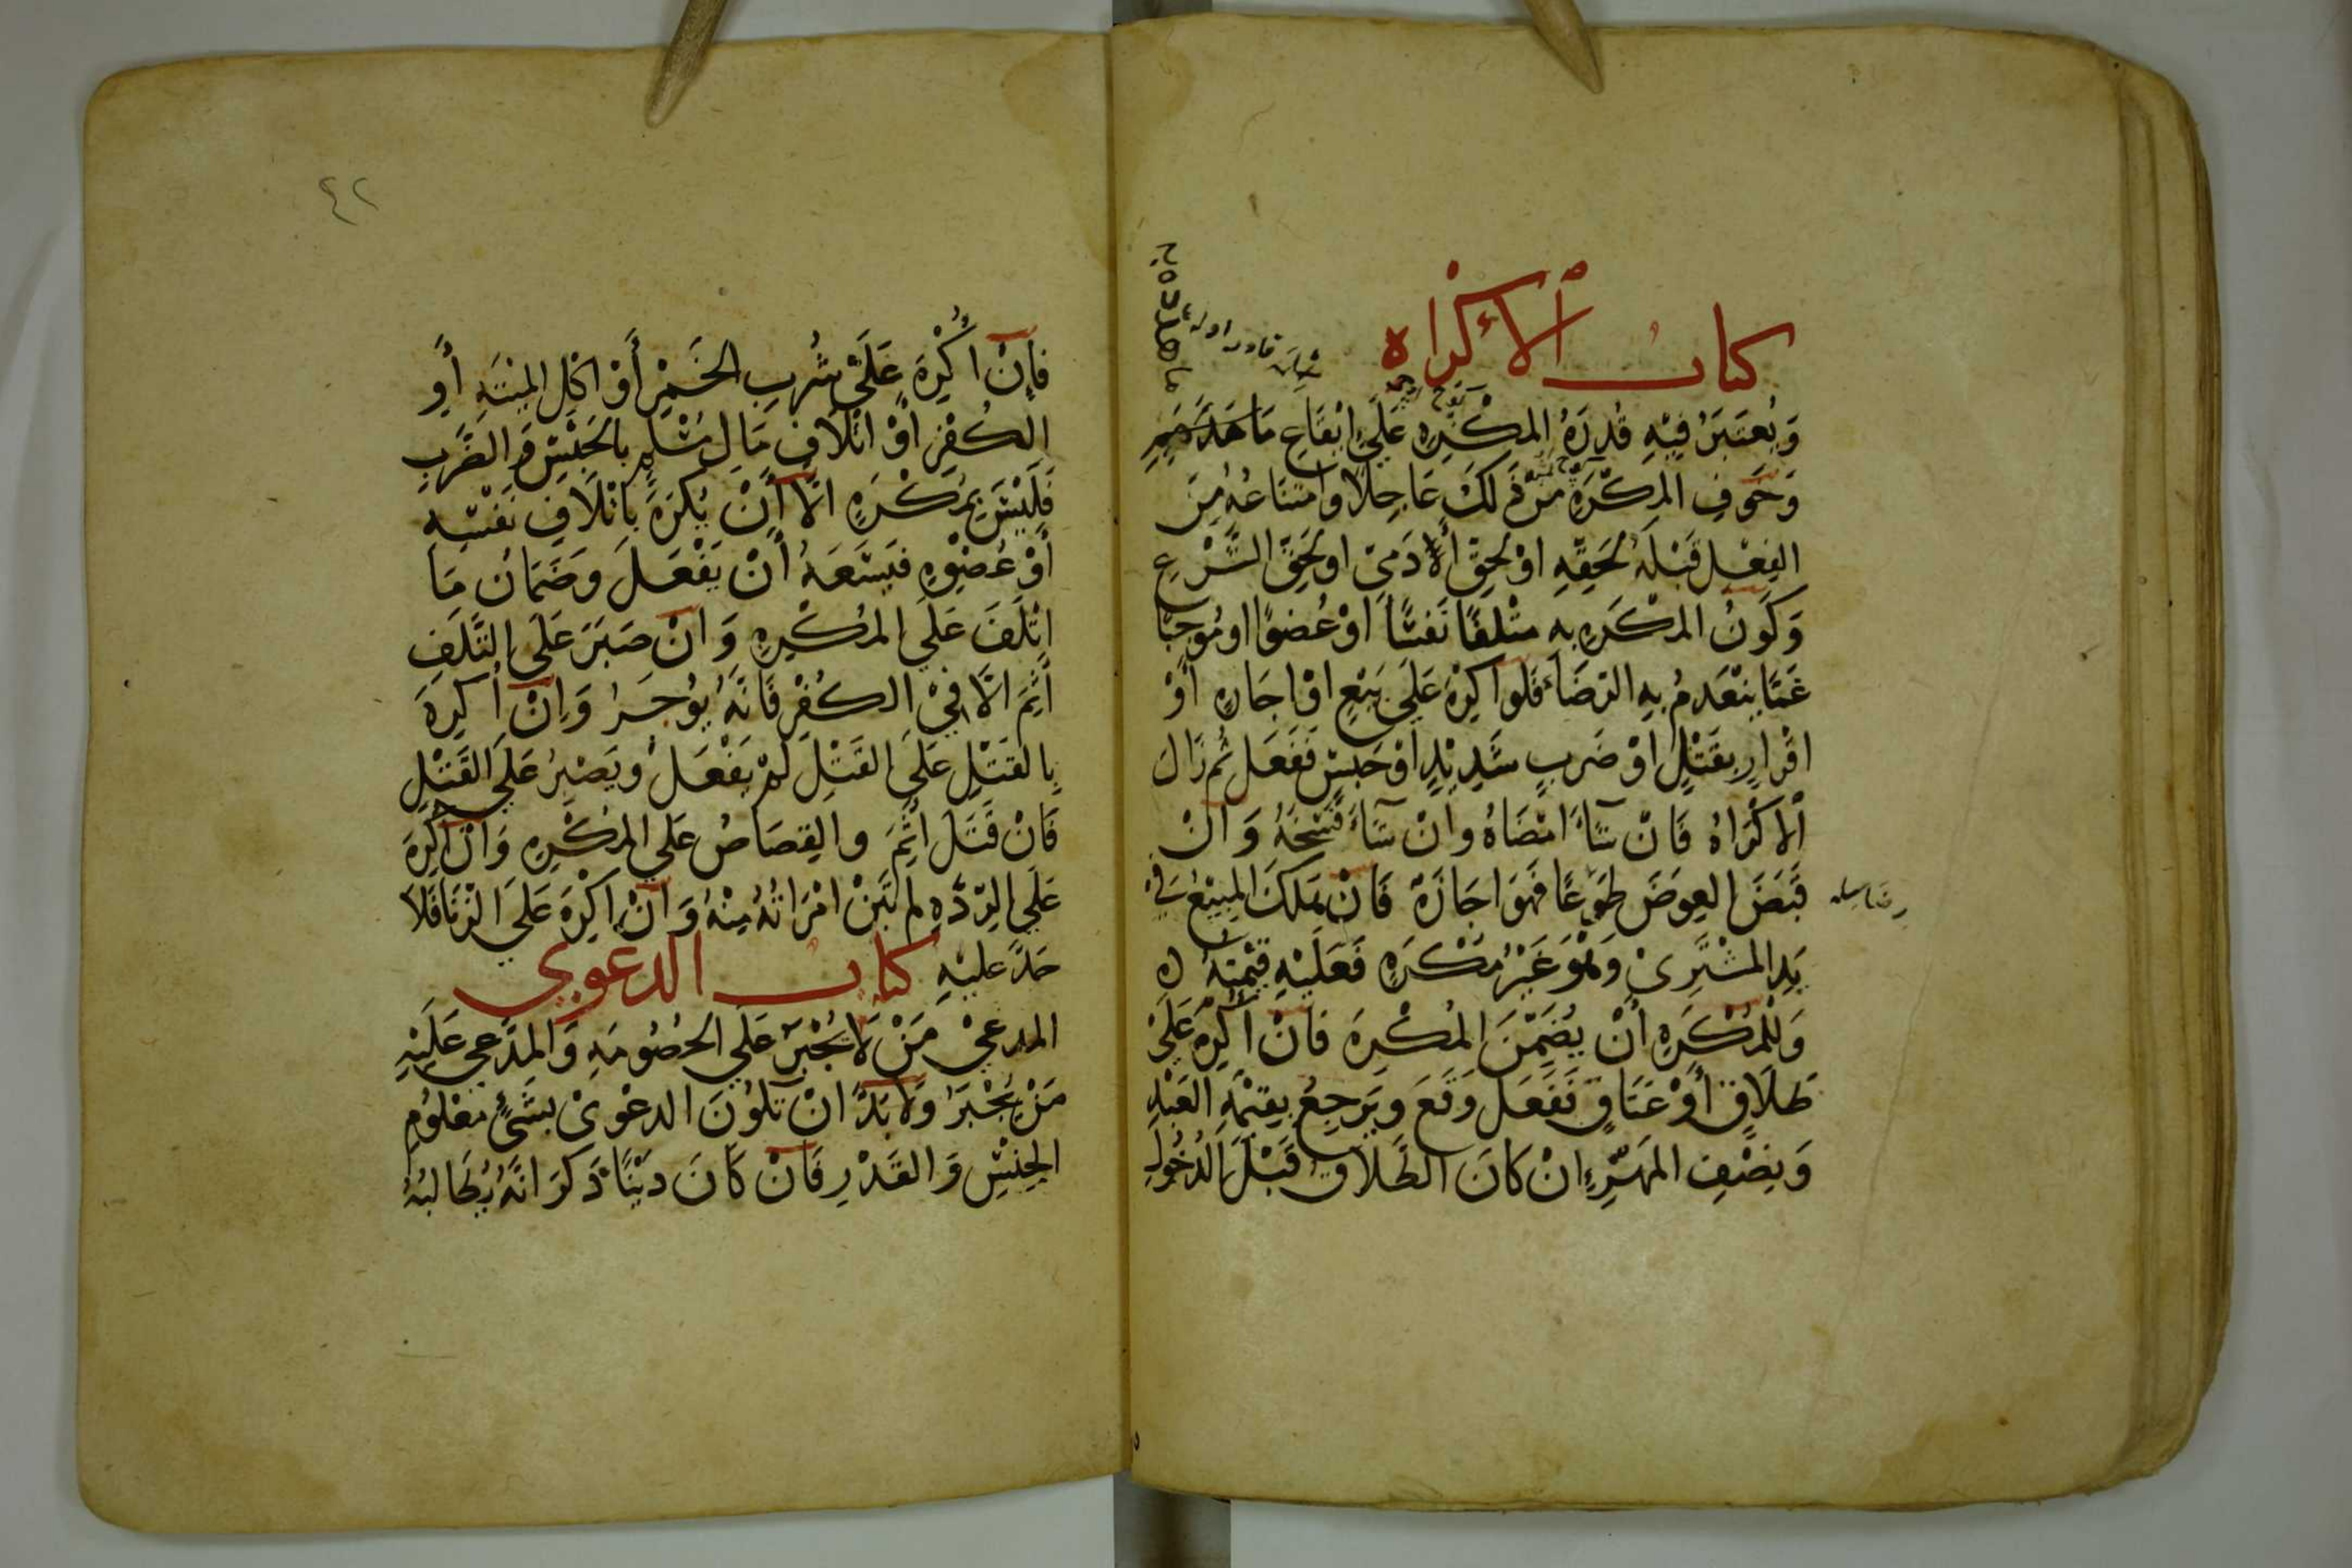 كتاب الاكراه
وَيُعتَبَرُ فِيْهِ قُدرَةُ المكْرِهِ عَلَي اِيْقَاعِ مَا هَدَّدَ بِهِ
وَخَوفِ المكرَهِ مِنْ ذَلكَ عَاجِلًا وامتناعُهُ مِنَ
الفِعْل قَبْلَهُ لحَقِّهِ اوْ لحِقّ الادَمِيّ او لحَقِّ الشَّرْعِ
وَكَونُ المكْرَهِ بِهِ متْلفًا نَفسًا اوْ عُضوًا او مُوجبًا
غَمًّا يَنْعَدمُ بِهِ الرّضَاءُ فَلو اكرِهَ عَلَي بَيْعٍ اوْ اجَارةٍ أَوْ
اقْرارٍ بقَتْلٍ اوْ ضَربٍ شَدِيْدٍ اوْ حَبسٍ فَفَعَل ثُم زَالَ
الاكْرَاهُ فَانْ شآءَ امْضَاهُ وانْ شآءَ فَسْخَهُ وَانْ
قَبَضَ العِوَضَ طَوعًا فهَوَ اجَازَةً فَانْ هَلكَ المبِيْعُ فِي
يَدِ المشْتَرِيْ وَهُوَ غَيْرُ مُكْرَهٍ فَعَلَيْهِ قِيْمَتُهُ
وَلْلمُكْرَهِ أَنْ يُضَمِّنَ المُكْرِهَ فَانْ أُكْرِهَ عَلَيْ
طَلَاقٍ أَوْ عَتَاقٍ فَفَعَل وَقَعَ ويَرجِعُ بِقيْمَةِ العَبْدِ
وَنِصْفِ المَهْرِ انْ كانَ الطَلاَق قَبْلَ الدُخُولِ
٤٢
فإنْ اُكْرِهَ عَلَيْ شُربِ الخَمْرِ أَوْ اكْلِ الميْتَهِ أَوِ
الكُفْرِ اوْ اتْلَافِ مَالِ مُسْلِمٍ بالحَبْسِ وَالضَّربِ
فَلَيْسَ بمُكْرَهٍ الَّا أَنْ يُكرَهَ بِاتْلَافِ نَفْسِهِ
أَوْ عُضْوِهِ فيَسَعَهُ أَنْ يَفْعَلَ وَضَمَانُ مَا
اتْلَفَ عَلَي المُكْرِهِ وَانْ صَبَرَ عَلَي التَّلَفِ
أثِمَ الَّا فِيْ الكُفْرِ فَانَّهُ يُوْجَرُ وَانْ اُكرِهَ
بالقَتْلِ عَلَي القَتْلِ لَمْ يَفْعَلْ ويَصْبِرُ عَلَي القَتْلِ
فَانْ قَتَلَ أَثِمَ والقِصَاصُ عَلَي المُكْرِهِ وَانْ اُكْرِهَ
عَلَي الرِدَّهِ لم تَبنْ امْرَاتُهُ مِنْهُ وَانْ اُكْرِهَ عَلَي الزنَا فَلَا
حَدَّ عليْهِ كتاب الدعوي
المدعيْ مَنْ لَا يُجْبَرُ عَلَي الخُصُومَهِ وَالمدَّعي عَلَيْهِ
مَنْ يُجْبَرُ وَلَا بُدَّ انْ تكُونَ الدعْويْ بشَيْئٍ معْلُومِ
الجنْسِ وَالقَدْرِ فَانْ كَانَ دَيْنًا ذَكرَ انَّهُ يُطَالبُهُ